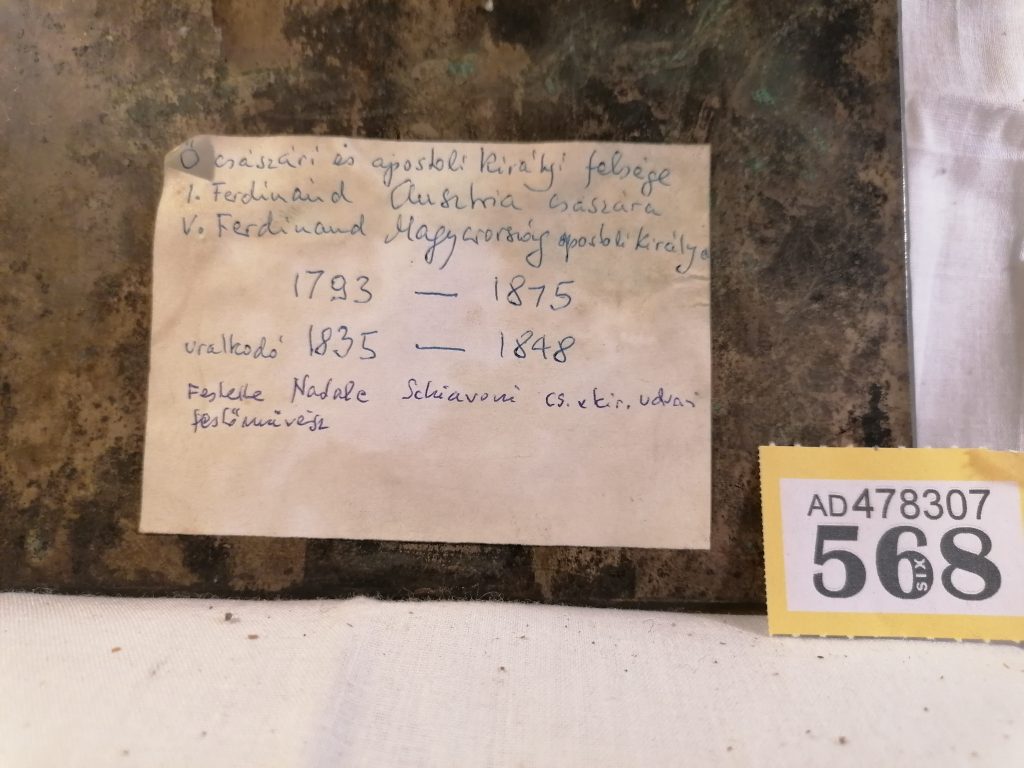 Ő császári és apostoli királyi felsége
1. Ferdinánd Ausztria császára
V. Ferdinand Magyarország apostoli királya
1793 — 1875
uralkodó 1835 — 1848
Festette Nadale Schiavoni cs. kir. udvari
festőművész
AD478307
568
XIS